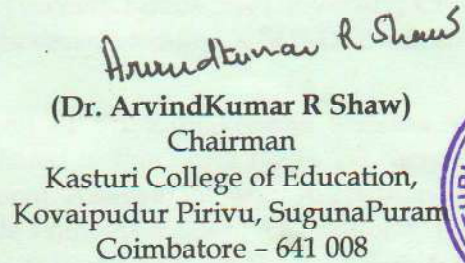 Arvindkumar R Shaw
(Dr. ArvindKumar R Shaw)
Chairman
Kasturi College of Education,
Kovaipudur Pirivu, SugunaPuram
Coimbatore – 641 008